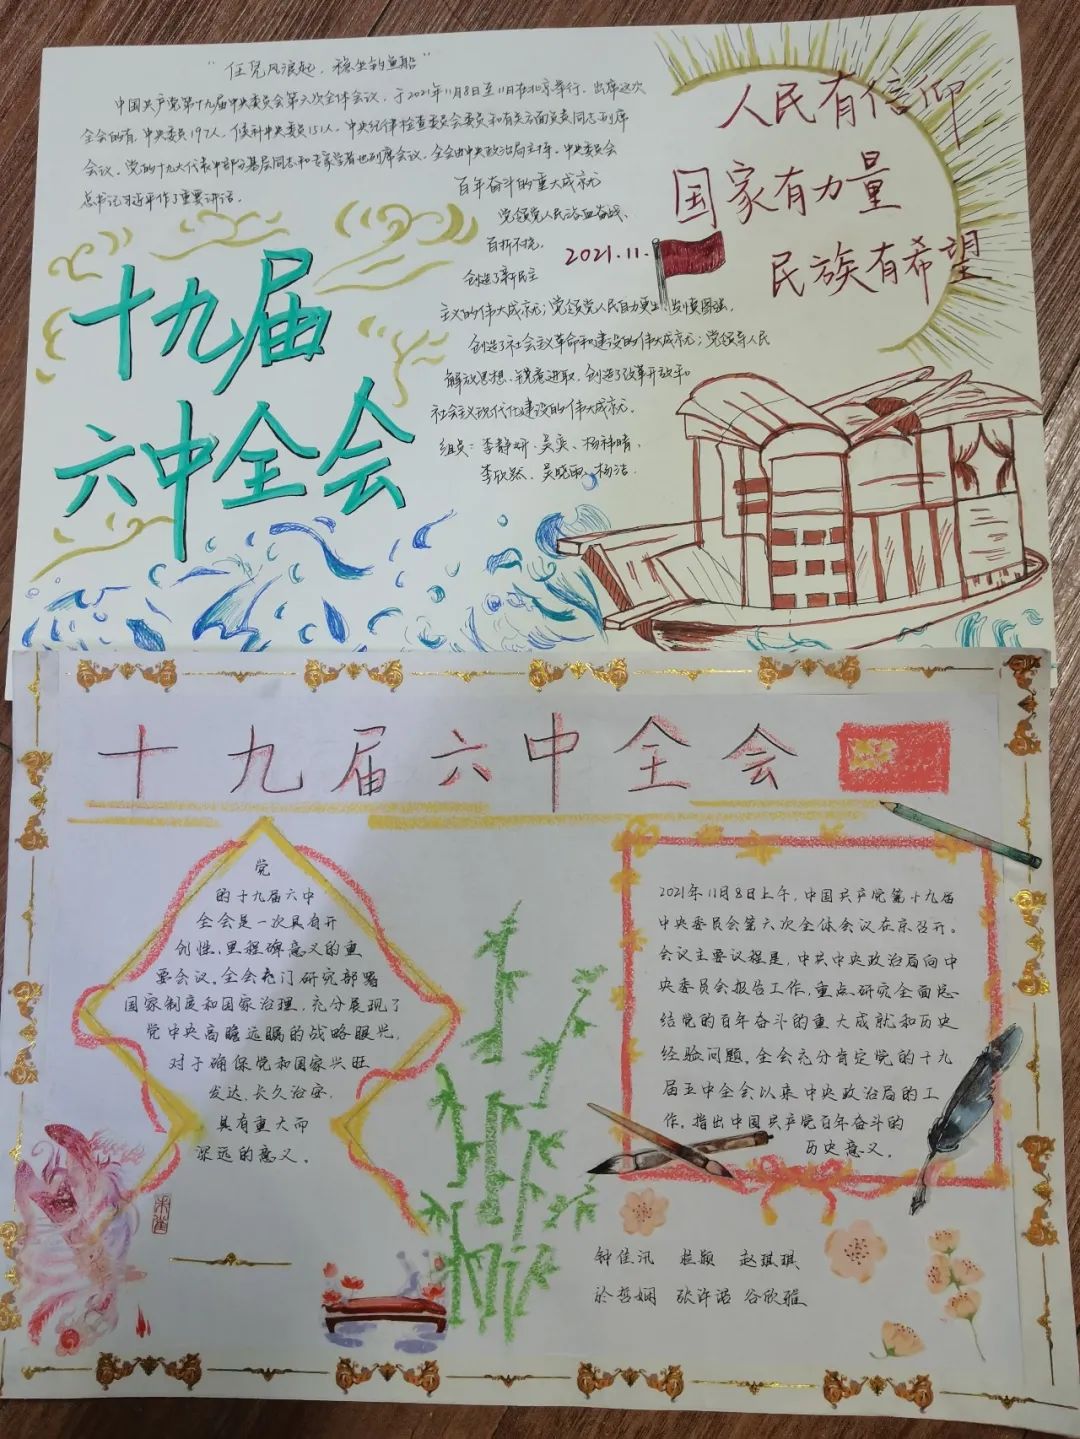 “任凭风浪起，稳坐钓鱼船”
中国共产党第十九届中央委员会第六次全体会议，于2021年11月8日至11日在北京举行。出席这次
全会的有，中央委员197人，候补中央委员151人。中央纪律检查委员会委员和有关方面负责同志列席
会议。党的十九大代表中部分基层同志和专家学者也列席会议。全会由中央政治局主持。中央委员会
总书记习近平作了重要讲话。
人民有信仰
国家有力量
民族有希望
2021.11.
十九届
六中全会
百年奋斗的重大成就
党领党人民浴血奋战、
百折不挠，
创造了新民主
主义的伟大成就；党领党人民自力更生、发愤图强，
创造了社会主义革命和建设的伟大成就；党领导人民
解放思想、锐意进取，创造了改革开放和
社会主义现代化建设的伟大成就。
组员：李静妍、吴奕、杨祎晴、
李欣然、吴晓雨、杨洁
十九届六中全会
党
的十九届六中
全会是一次具有开
创性、里程碑意义的重
要会议。全会专门研究部署
国家制度和国家治理，充分展现了
党中央高瞻远瞩的战略眼光，
对于确保党和国家兴旺
发达、长久治安，
具有重大而
深远的意义。
朱雀
2021年11月8日上午，中国共产党第十九届
中央委员会第六次全体会议在京召开。
会议主要议程是，中共中央政治局向中
央委员会报告工作，重点研究全面总
结党的百年奋斗的重大成就和历史
经验问题。全会充分肯定党的十九
届五中全会以来中央政治局的工
作。指出中国共产党百年奋斗的
历史意义。
钟佳汛 颖 赵琪琪
於哲娴 张许诺 谷欣雅